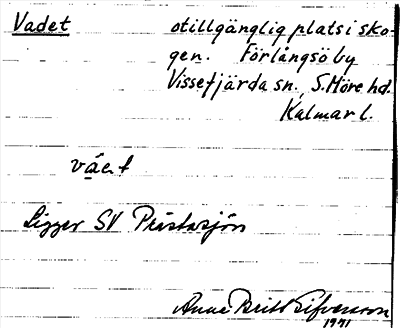 Vadet otillgänglig plats i sko-
gen. Förlångsö by
Vissefjärda sn., S. Möre hd.
Kalmar l.
Ligger SV Prästasjön
Anna Britt
1941